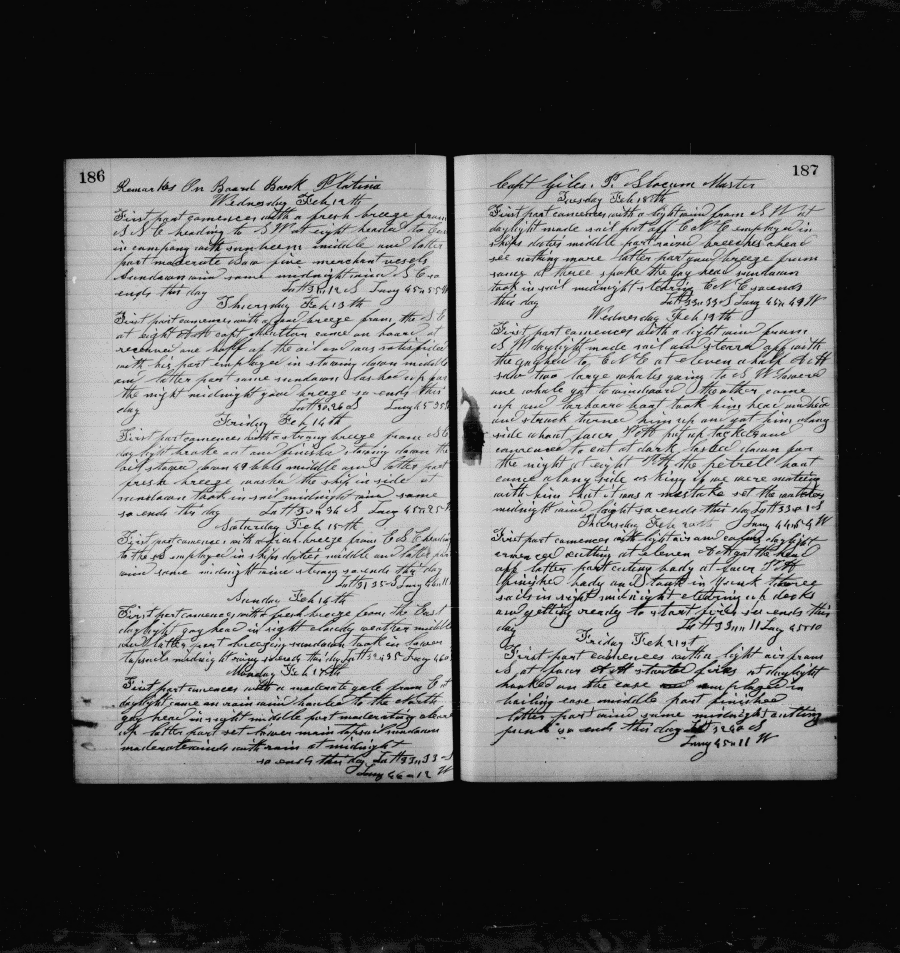 186
Remarks On Board Bark Platina
Wednesday Feb 12th
First part comences with a fresh breeze from
N N E heading to S W at eight headed to
in company with sunbeem middle and latter
part moderote saw five merchant vessels
Sundown wind same midnight wind S E so
ends this day Latt 30 12 S Long 45 55 W
Thursday Feb 13th
First part comences with a fine breeze from the S E
at eight A M capt came on board and
received one half of the oil and was satisfied
with his part employed in stowing down middle
and latter part same sundown up for
the night midnight good breeze so ends this
day Latt 30 26 S Long 45 35
Friday Feb 14th
First part comences with a strong breeze from S E
daylight broke out and finished stowing down the
oil stowed down 49 bbls middle and latter part
fresh breeze washed the ship in side at
sundown took in sail midnight wind same
so ends this day Latt 30 36 S Long 45 25 W
Saturday Feb 15th
First part comences with a fresh breeze from E S E heading
to the employed in ships duties middle and latter part
wind same midnight wind strong so ends this day
Latt 31 35 S Long
Sunday Feb 16th
First part comences with fresh breeze from the East
daylight gay head in sight cloudy weather middle
and latter part breezing sundown took in lower
topsails midnight so ends this day Latt 32 43 S Long 46 0
Monday Feb 17th
First part comences with a moderate gale from E at
daylight same and rain wind hauled to the North
gay head in sight middle part moderating cleared
up latter part set lower main topsail sundown
moderate winds with rain at midnight
so ends this day Latt 33 33 S
Long 46 12 W
187
Capt Giles. P. Slocum Master
Tuesday Feb 18th
First part comences with a light wind from N W at
daylight made sail put off E N E employed in
ships duties middle part raised breeches ahead
see nothing more latter part good breeze from
same at three spoke the gay head sundown
took in sail midnight stearing E N E so ends
this day Latt 33 33 S Long 45 49 W
Wednesday Feb 19th
First part comences with a light wind from
N W daylight made sail and steard off with
the gay head to E N E at eleven a half A M
saw two large whales going to S W lowered
one whale got to windward the other came
up and larboard boat took him head and head
and struck turned him up and got him along
side about four P M put up tackles and
comenced to cut at dark lashed down for
the night at eight P M the petrell boat
came along side asking if we were mateing
with him but it was a mistake set the watches
midnight wind light so ends this day Latt 33 01 S
Thursday Feb 20th Long 44 54 W
First part comences with light airs and calms daylight
comenced cutting at eleven A M got the head
off latter part cuting body at four P M
finished body and took in junk three
sails in sight midnight clearing up decks
and getting ready to start fires so ends this
day Latt 33 11 Long 45 10
Friday Feb 21st
First part comences with a light air from
N at four A M started fires at daylight
hooked on the case and employed in
bailing case middle part finished
latter part wind same midnight cutting
junk so ends this day Latt 32 40 S
Long 45 11 W